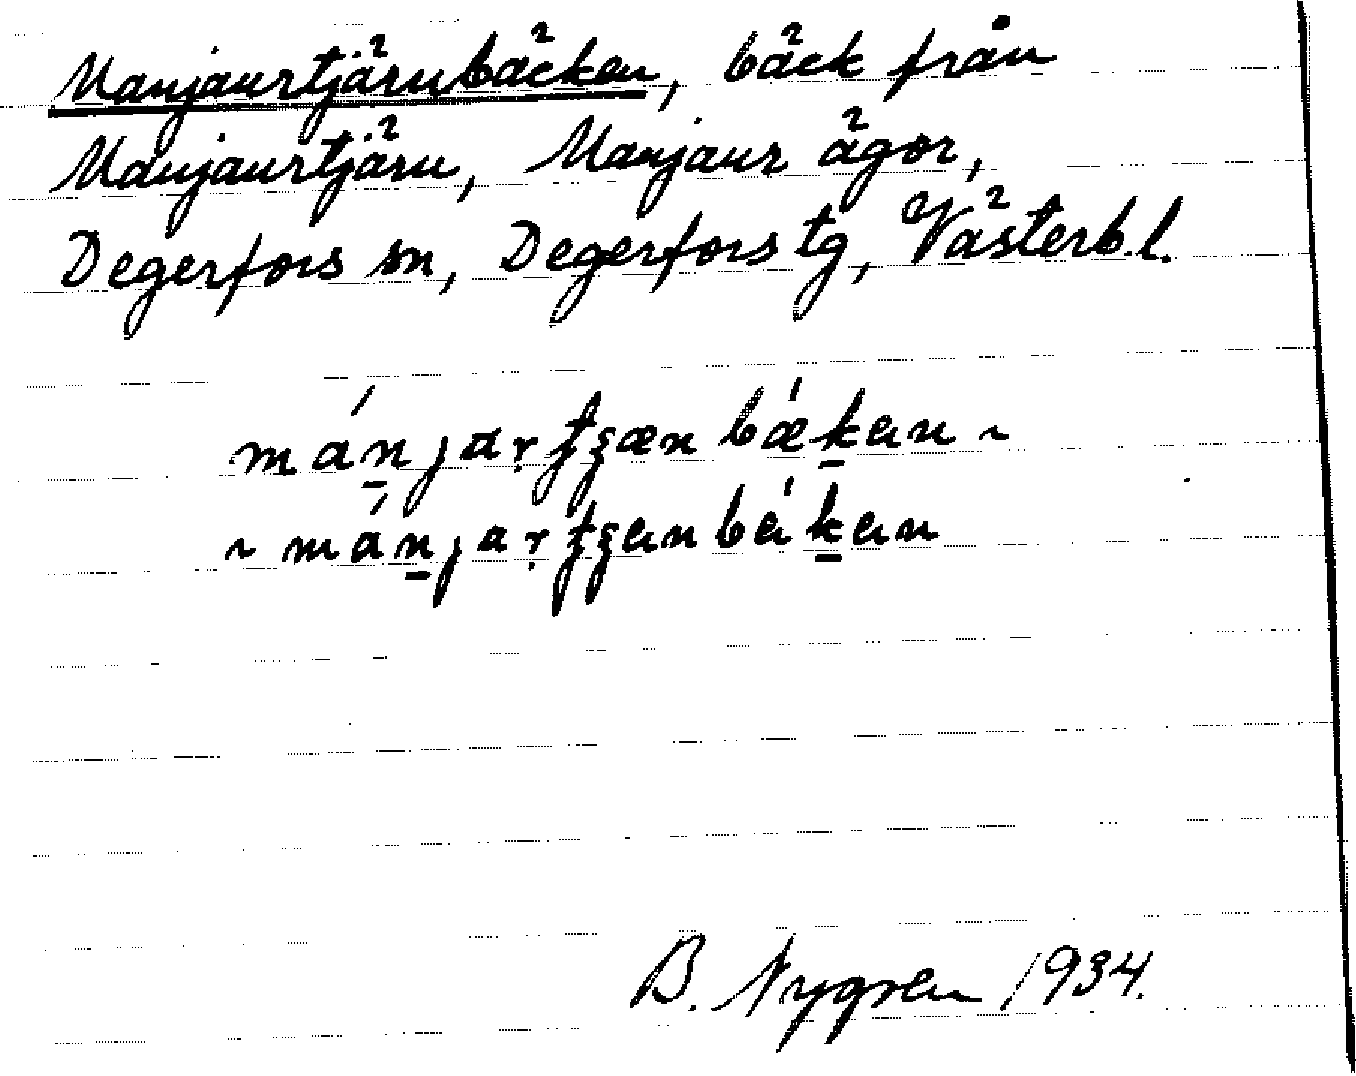 Manjaurtjärnbäcken, bäck från
Manjaurtjärn, Manjaur ägor,
Degerfors sn, Degerfors tg, Västerb.l.
B. Nygren 1934.